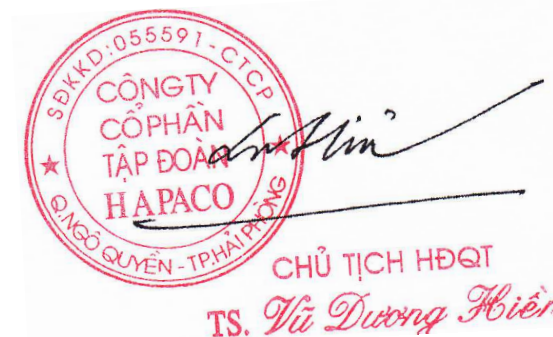 SĐKKD:055591-CTCP
CÔNG TY
CỔ PHẦN
TẬP ĐOÀN
HAPACO
Q.NGÔ QUYỀN - TP.HẢI PHÒNG
CHỦ TỊCH HĐQT
TS. Vũ Dương Hiền